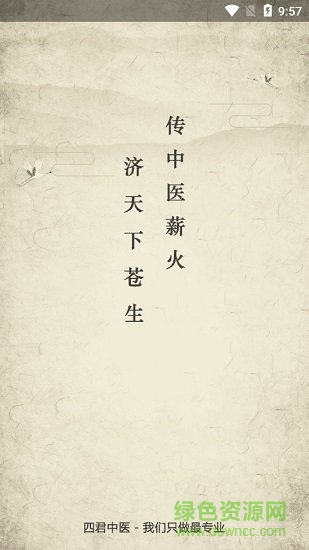 9:57
传中医薪火
济天下苍生
四君中医 - 我们只做最专业
绿色资源网
www.downcc.com